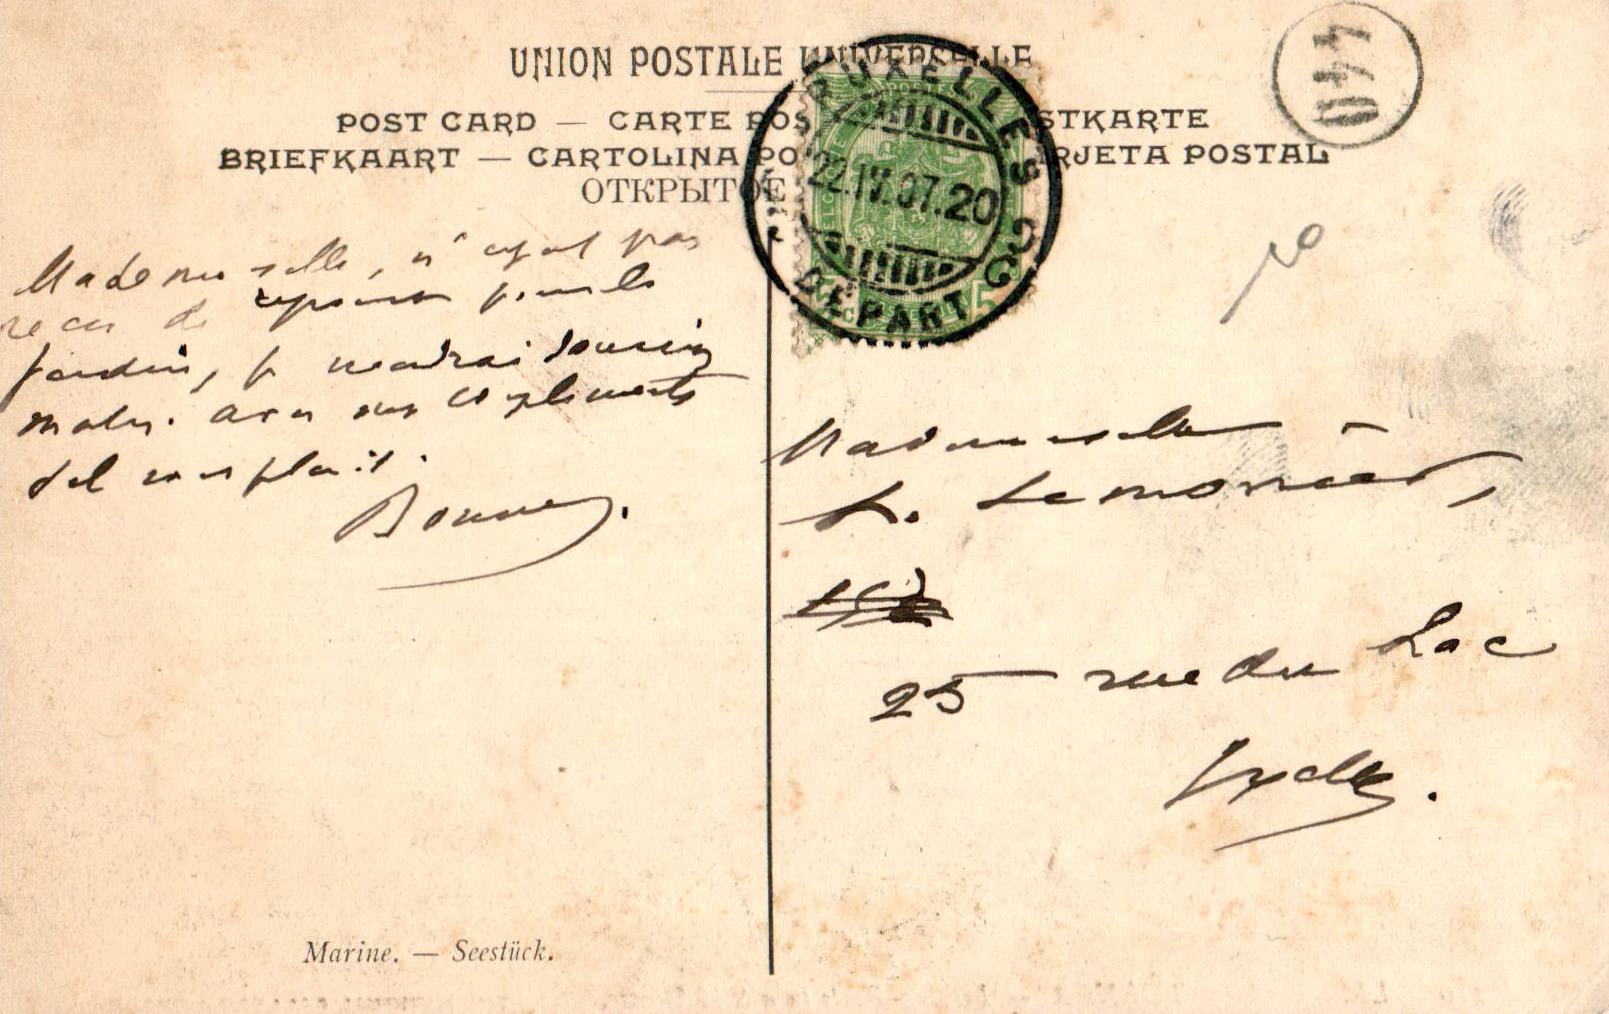 UNION POSTALE UNIVERSELLE
POST CARD — CARTE POS STKARTE
BRIEFKAART — CARTOLINA PO RJETA POSTAL
ОТКРЫТОЕ
BRUXELLES
22.IV.07.20
DEPART
5
440
Mademoiselle, n'ayant pas
recu de reponse pour le
jardin, je viendrai
matin. avec mes compliments
s'il vous plait.
Mademoiselle
L. Lemonnier,
25 rue du Lac
Ixelles.
Marine. — Seestück.